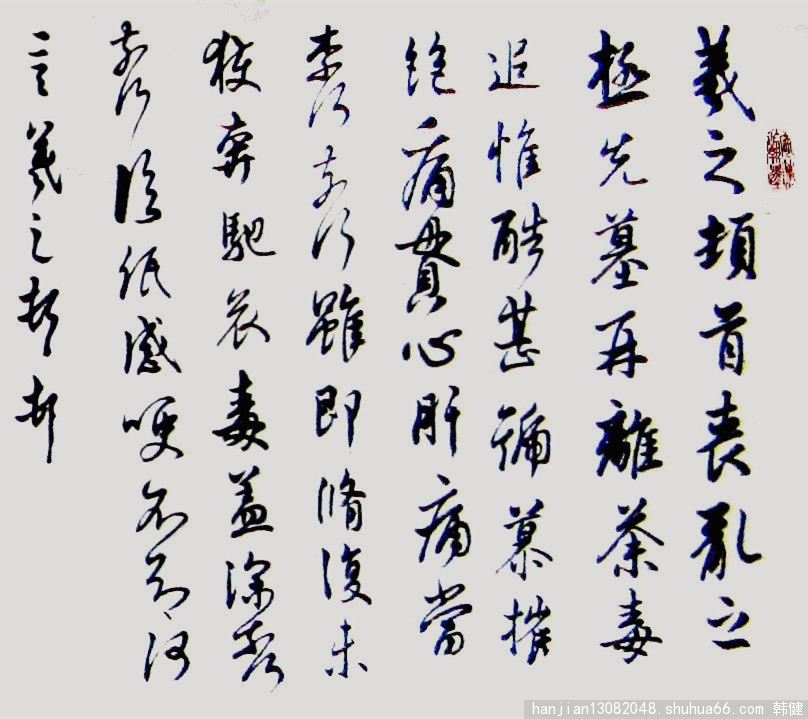 羲之頓首喪亂之
極先墓再離荼毒
追惟酷甚號慕摧
絕痛貫心肝痛當
奈何奈何雖即脩復未
獲奔馳哀毒益深奈何
奈何臨紙感哽不知何
言羲之頓首
hanjian13082048.shuhua66.com 韩健